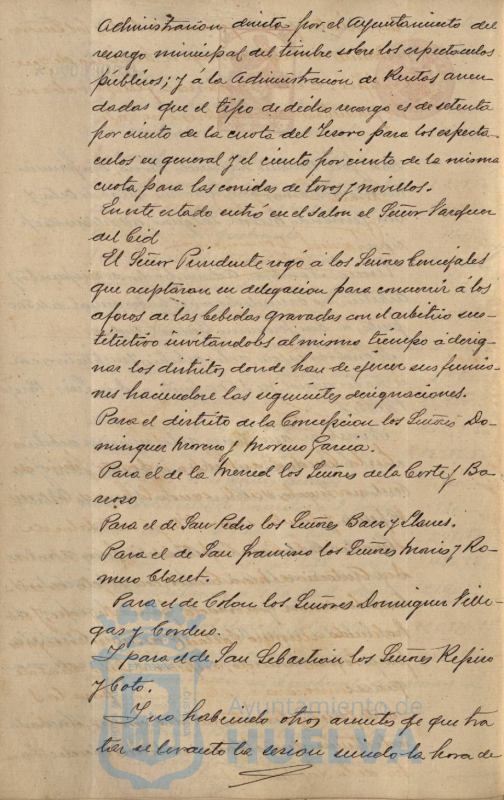 Administracion directa por el Ayuntamiento del
recargo municipal del timbre sobre los espectaculos
públicos; y á la Administracion de Rentas arren
dadas que el tipo de dicho recargo es de setenta
por ciento de la cuota del Tesoro para los especta-
culos en general y el ciento por ciento de la misma
cuota para las corridas de toros y novillos.
En este estado entró en el salon el Señor Vazquez
del Cid
El Señor Presidente rogó á los Señores Concejales
que aceptaran en delegacion para concurrir á los
aforos de las bebidas gravadas con el arbitrio sus-
titutivo invitandoles al mismo tiempo á desig-
nar los distritos donde han de ejercer sus funcio-
nes haciendose las siguientes designaciones.
Para el distrito de la Concepcion los Señores Do-
minguez Moreno y Moreno Garcia.
Para el de la Merced los Señores de la Corte y Ba-
rroso
Para el de San Pedro los Señores Baez y Llanes.
Para el de San Francisco los Señores Moris y Ro-
mero Claret.
Para el de Colon los Señores Dominguez Ville-
gas y Cordero.
Y para el de San Sebastian los Señores Refino
y Coto.
Y no habiendo otros asuntos de que tra
tar se levanto la sesion siendo la hora de
Ayuntamiento de
HUELVA